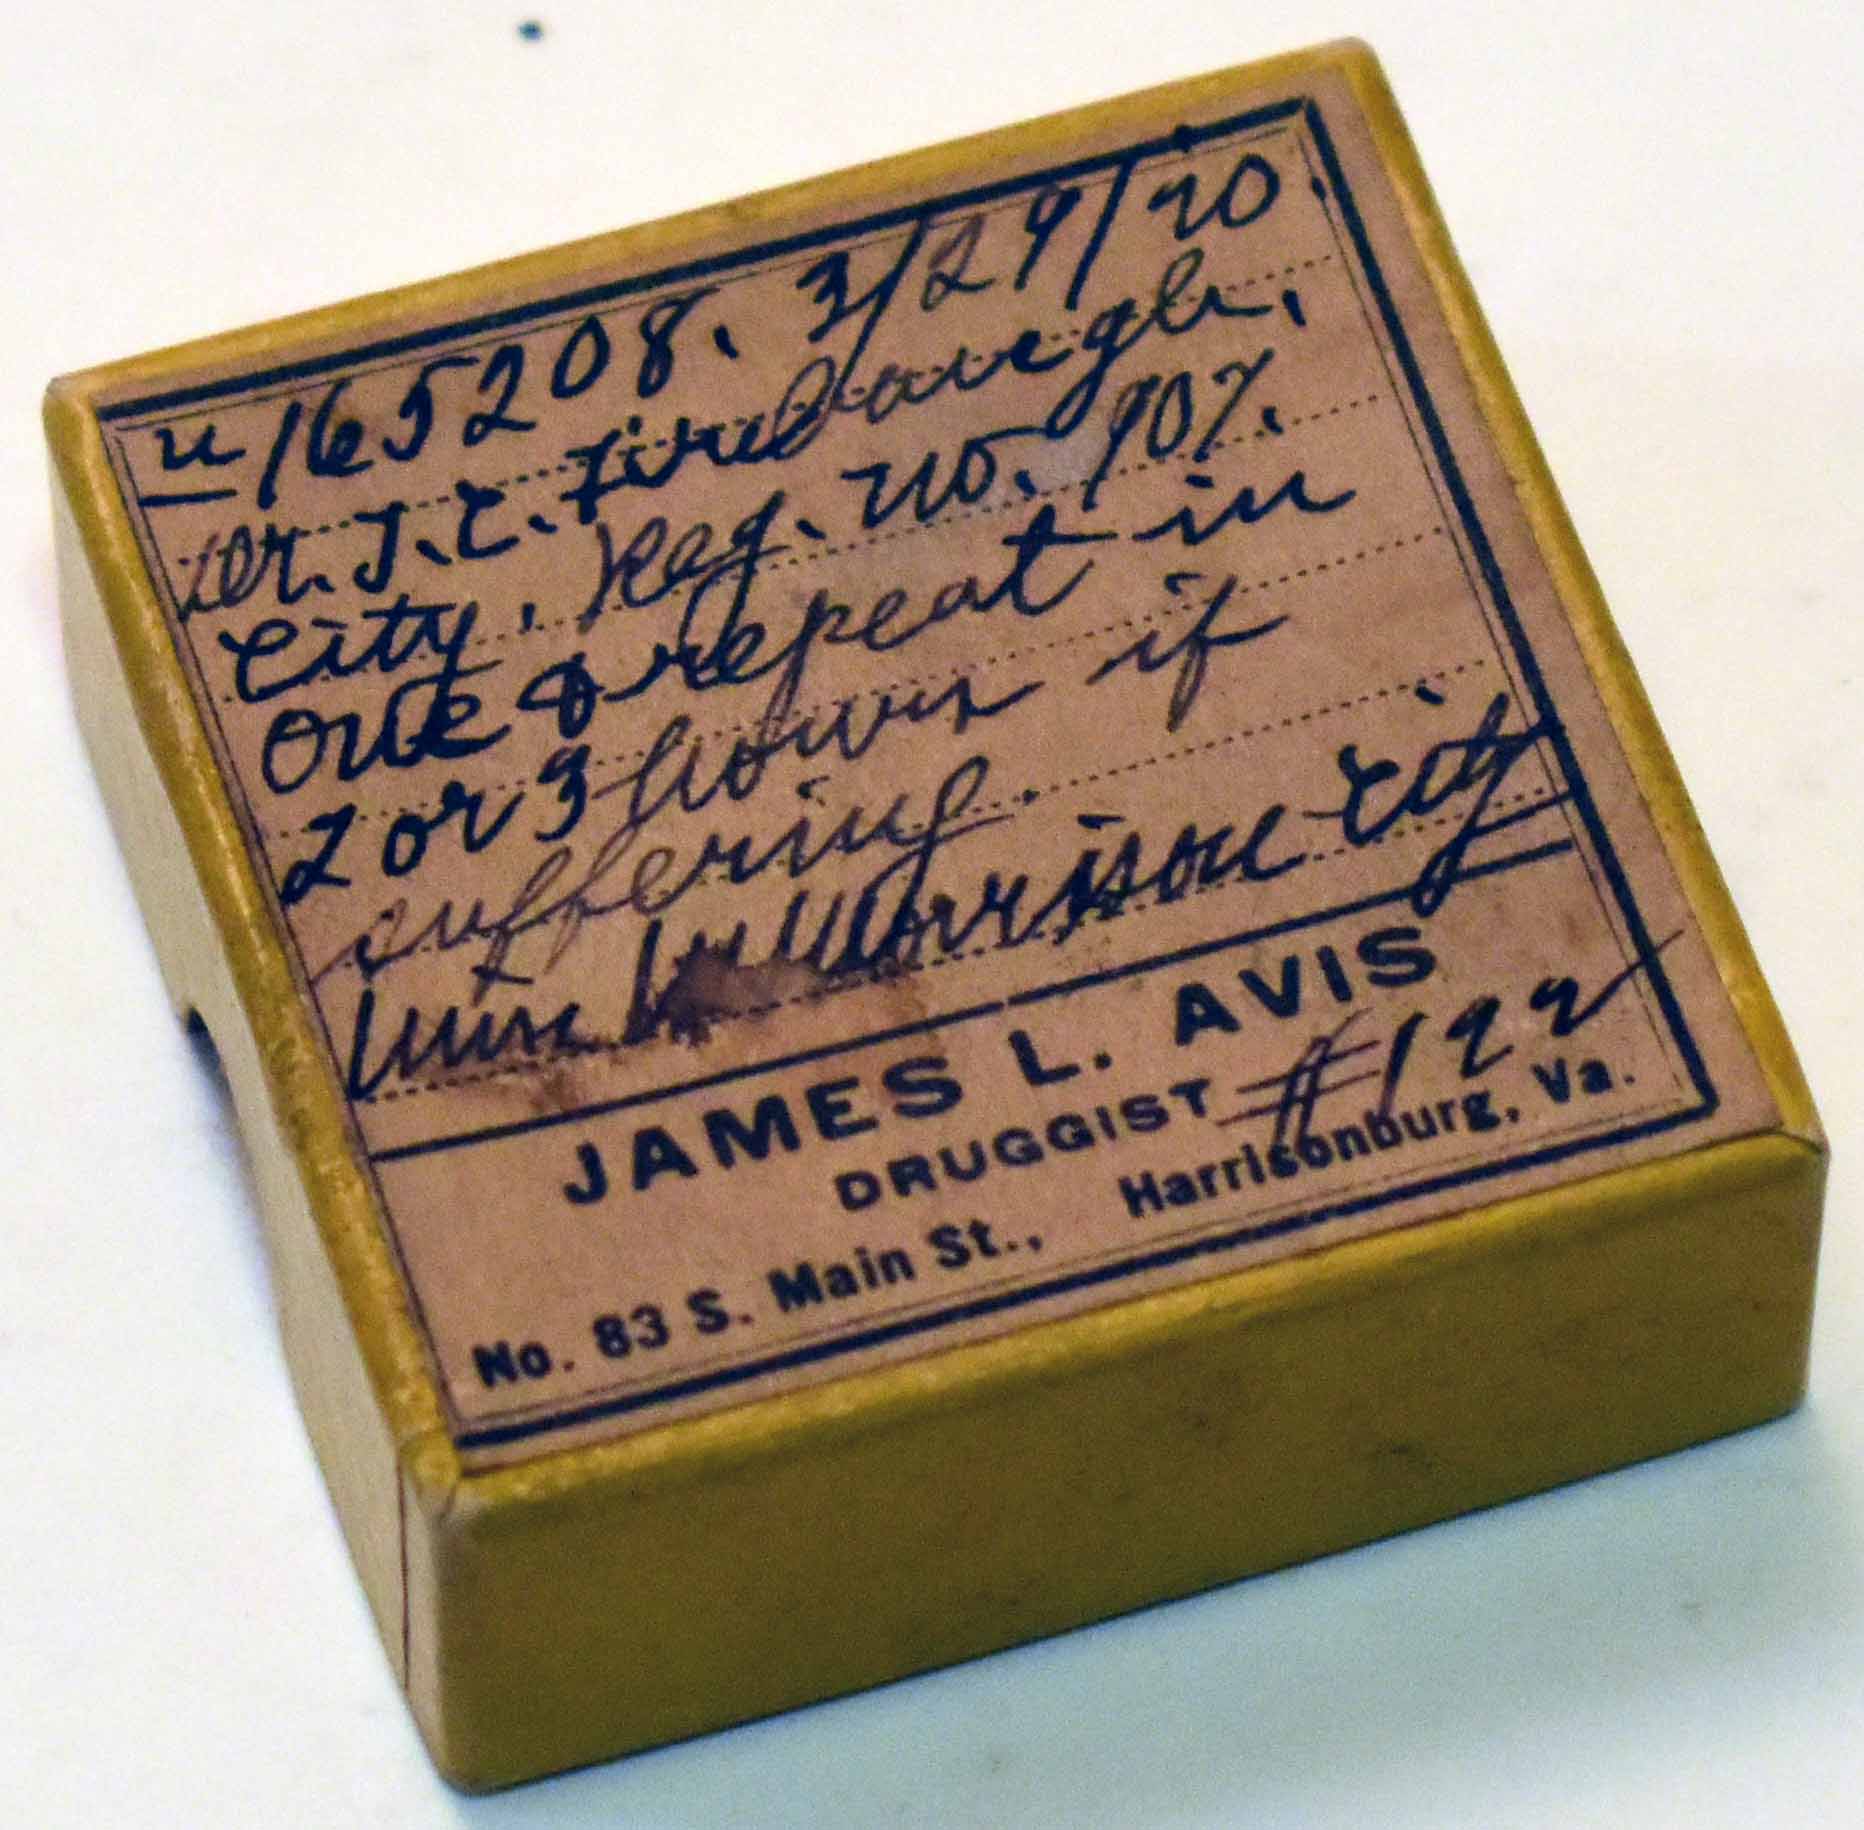 u 165208. 3/29/20.
Dr. J.C. Firebaugh,
City. Reg. no. 907.
One & repeat in
2 or 3 hours if
suffering.
Miss Morrison City
JAMES L. AVIS
DRUGGIST #122
No. 83 S. Main St., Harrisonburg, Va.